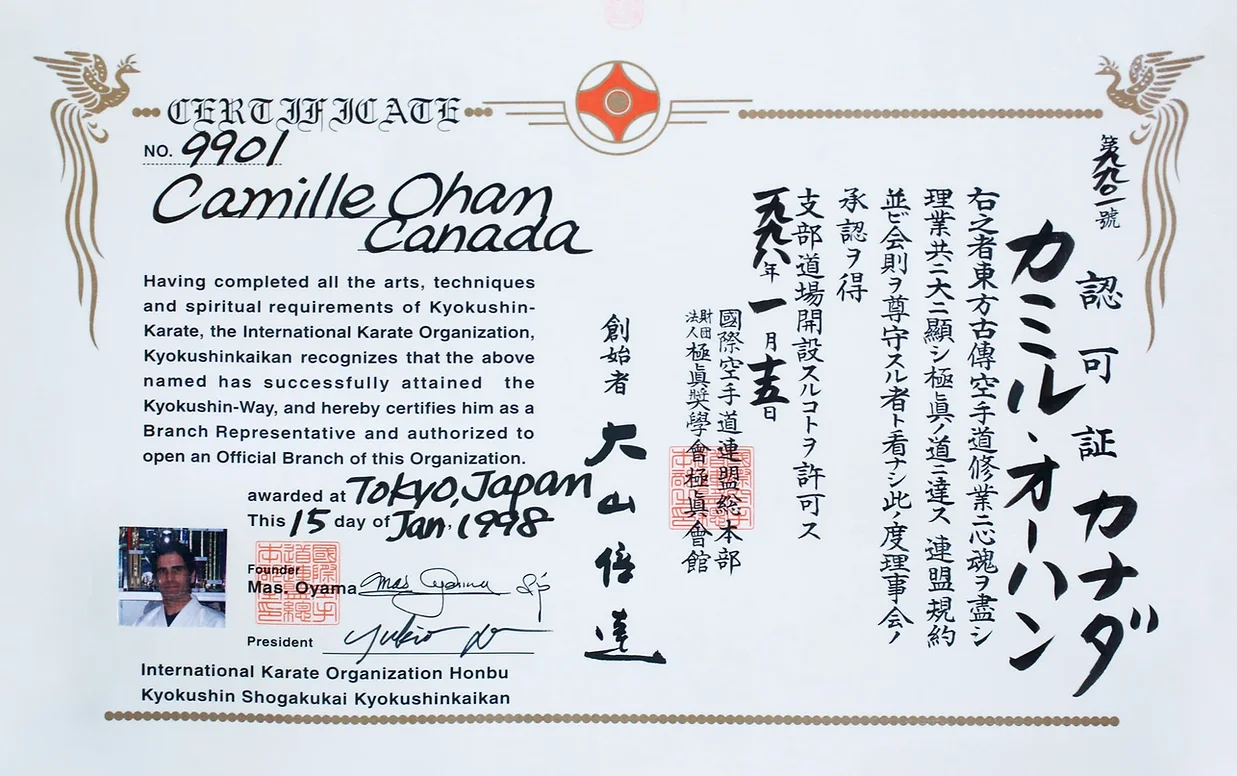 CERTIFICATE
NO. 9901
Camille Ohan
Canada
Having completed all the arts, techniques
and spiritual requirements of Kyokushin-
Karate, the International Karate Organization,
Kyokushinkaikan recognizes that the above
named has successfully attained the
Kyokushin-Way, and hereby certifies him as a
Branch Representative and authorized to
open an Official Branch of this Organization.
awarded at Tokyo, Japan
This 15 day of Jan, 1998
Founder
Mas. Oyama Mas Oyama
President Yukio
International Karate Organization Honbu
Kyokushin Shogakukai Kyokushinkaikan
第九九〇一號
認可証 カナダ
カミル・オーハン
右之者東方古傳空手道修業ニ心魂ヲ盡シ
理業共ニ大ニ顯シ極眞ノ道ニ達ス 連盟規約
並ビ会則ヲ尊守スル者ト看ナシ此ノ度理事会ノ
承認ヲ得
支部道場開設スルコトヲ許可ス
一九九八年一月十五日
國際空手道連盟総本部
財団法人極眞奨學會極眞會館
創始者 大山倍達